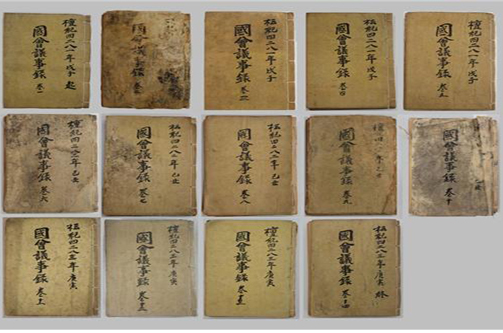 檀紀四二八一年戊子 起
國會議事錄 卷一
國會議事錄 卷
檀紀四二八一年戊子
國會議事錄 卷三
檀紀四二八一年戊子
國會議事錄 卷四
檀紀四二八一年戊子
國會議事錄 卷五
檀紀四二八二年己丑
國會議事錄 卷六
檀紀四二八二年己丑
國會議事錄 卷七
檀紀四二八二年己丑
國會議事錄 卷八
國會議事錄 卷九
國會議事錄 卷十
檀紀四二八三年庚寅
國會議事錄 卷十一
檀紀四二八三年庚寅
國會議事錄 卷十二
檀紀四二八三年庚寅
國會議事錄 卷十三
檀紀四二八三年庚寅 終
國會議事錄 卷十四